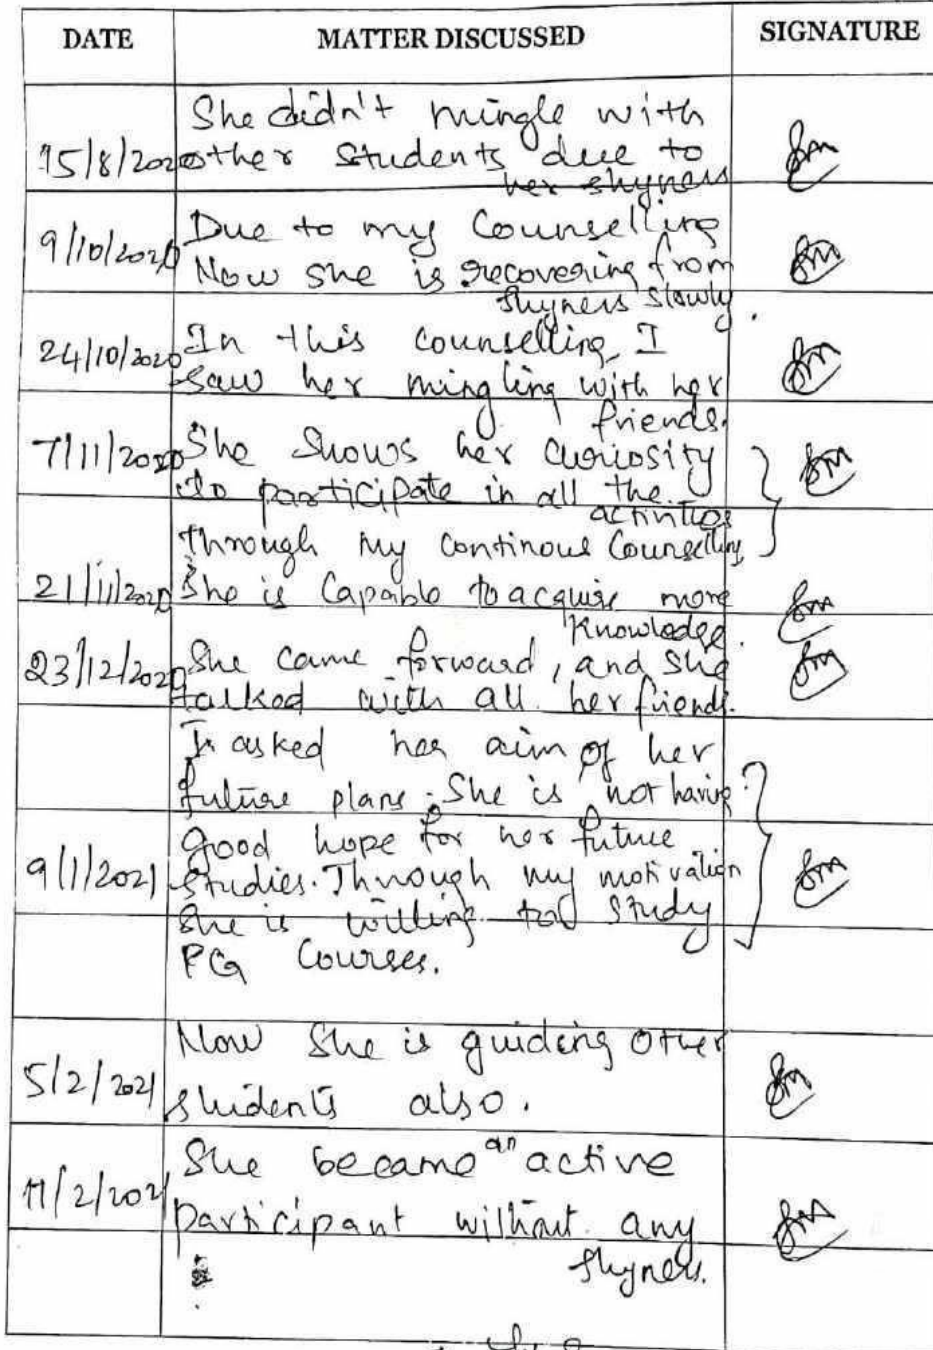 DATE MATTER DISCUSSED SIGNATURE
She didn't mingle with
15/8/2020 other students due to
her shyness
Due to my Counselling
9/10/2020 Now she is recovering from
shyness slowly.
24/10/2020 In this counselling I
saw her mingling with her
friends.
7/11/2020 She shows her curiosity
to participate in all the
activities
Through my continous Counselling
21/11/2020 She is Capable to acquire more
knowledge.
23/12/2020 She came forward, and she
talked with all her friends.
I asked her aim of her
future plans. She is not having
good hope for her future
9/1/2021 studies. Through my motivation
she is willing to study
PG Courses.
Now she is guiding other
5/2/2021 students also.
She became an active
11/2/2021 participant without any
shyness.